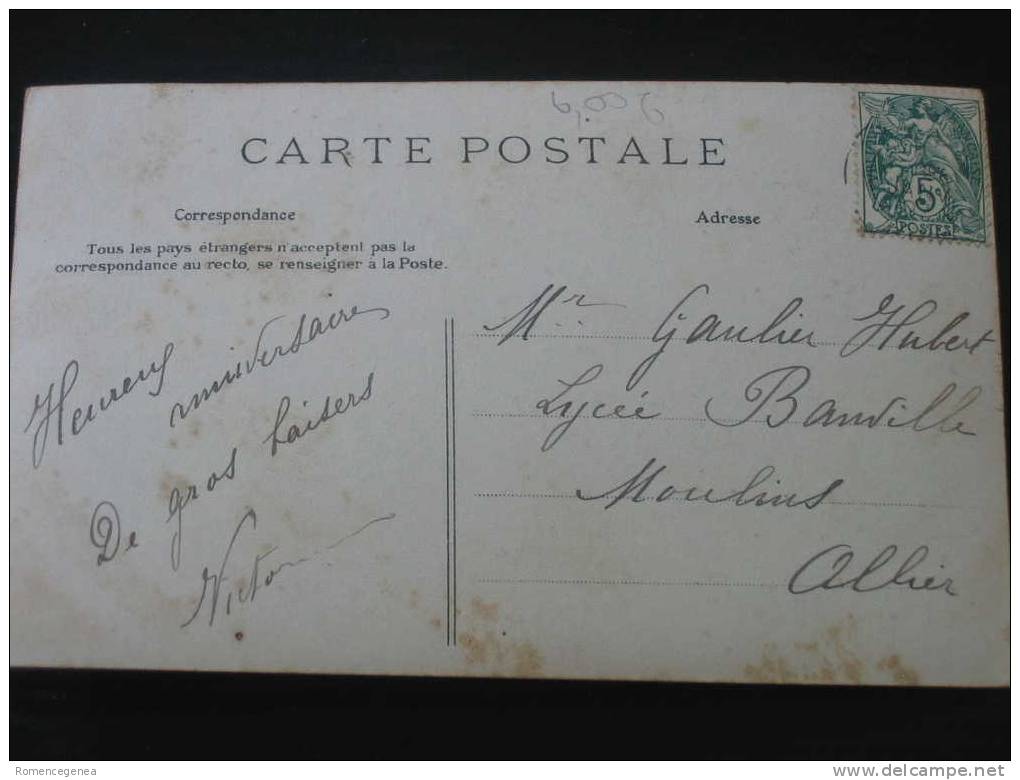 6,00 €
CARTE POSTALE
Correspondance
Adresse
Tous les pays étrangers n'acceptent pas la
correspondance au recto, se renseigner à la Poste.
5c
POSTES
Heureux
anniversaire
De gros baisers
Victor
Mr Gaulier Hubert
Lycée Banville
Moulins
Allier
Romencegenea
www.delcampe.net